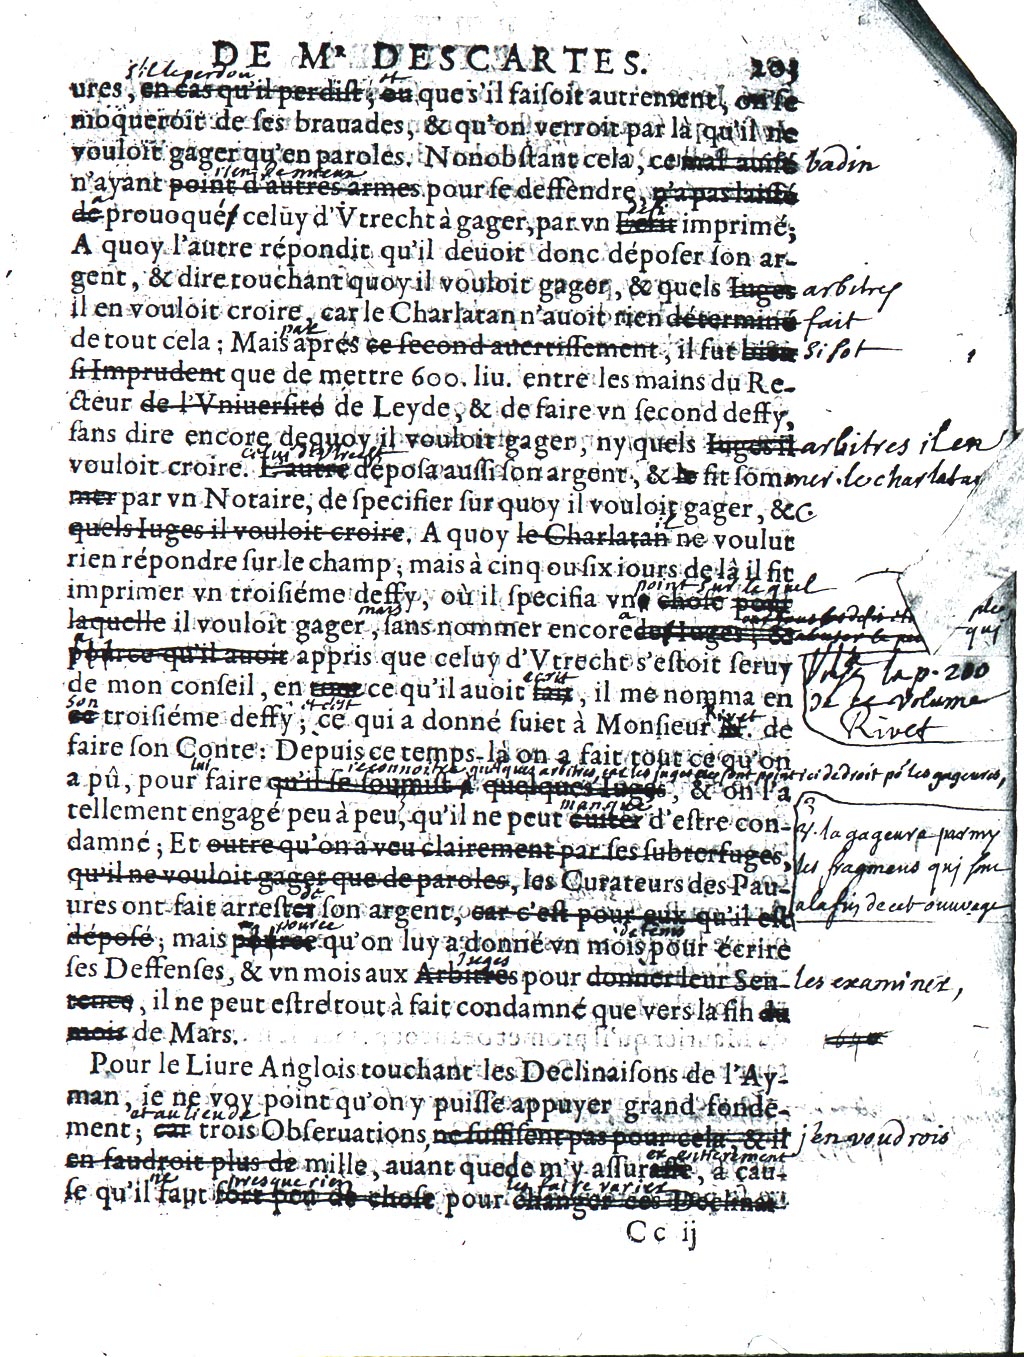 DE Mʳ DESCARTES. 203
s'il le perdou et
ures, en cas qu'il perdist; ou que s'il faisoit autrement, on se
moqueroit de ses brauades, & qu'on verroit par là qu'il ne
vouloit gager qu'en paroles. Nonobstant cela, ce mal auisé badin
rien de mieux
n'ayant point d'autres armes pour se deffendre, n'a pas laissé
a défi
de prouoqué celuy d'Vtrecht à gager, par vn Escrit imprimé;
A quoy l'autre répondit qu'il deuoit donc déposer son ar-
gent, & dire touchant quoy il vouloit gager, & quels Iuges arbitres
il en vouloit croire, car le Charlatan n'auoit rien déterminé fait
par
de tout cela; Mais aprés ce second auertissement, il fut bien si sot
si Imprudent que de mettre 600. liu. entre les mains du Re-
cteur de l'Vniuersité de Leyde, & de faire vn second deffy,
sans dire encore dequoy il vouloit gager, ny quels Iuges il arbitres il en
celui d'Vtrecht
vouloit croire. L'autre déposa aussi son argent, & le fit som mer le charlatan
mer par vn Notaire, de specifier sur quoy il vouloit gager, &c
il
quels Iuges il vouloit croire. A quoy le Charlatan ne voulut
rien répondre sur le champ, mais à cinq ou six iours de là il fit
point sur lequel
imprimer vn troisiéme deffy, où il specifia vne chose pour
mais
laquelle il vouloit gager, sans nommer encore des Iuges, &
pource qu'il auoit appris que celuy d'Vtrecht s'estoit seruy
la p. 200
écrit
de mon conseil, en tout ce qu'il auoit fait, il me nomma en de ce volume
son Rivet
ce troisiéme deffy; ce qui a donné suiet à Monsieur N. de Rivet
faire son Conte: Depuis ce temps-là on a fait tout ce qu'on
lui reconnoitre quelques arbitres, car les juges ne sont point ici de droit pʳ les gageures,
a pû, pour faire qu'il se soumist à quelques Iuges, & on l'a
manquer
tellement engagé peu à peu, qu'il ne peut euiter d'estre con- la gageure parmy
damné; Et outre qu'on a veu clairement par ses subterfuges, les fragmens qui sont
qu'il ne vouloit gager que de paroles, les Curateurs des Pau-
ures ont fait arrester son argent, car c'est pour eux qu'il est a la fin de cet ouuvage
déposé; mais pource qu'on luy a donné vn mois pour écrire
Iuges
ses Deffenses, & vn mois aux Arbitres pour donner leur Sen- les examiner,
tence, il ne peut estre tout à fait condamné que vers la fin du
mois de Mars.
Pour le Liure Anglois touchant les Declinaisons de l'Ay-
man, ie ne voy point qu'on y puisse appuyer grand fonde-
et au lieu de
ment; car trois Obseruations, ne suffisent pas pour cela, & il j'en voudrois
entierement
en faudroit plus de mille, auant que de m'y assurer, à cau-
ne presque rien les faire varier
se qu'il faut fort peu de chose pour changer ces Declinai-
Cc ij